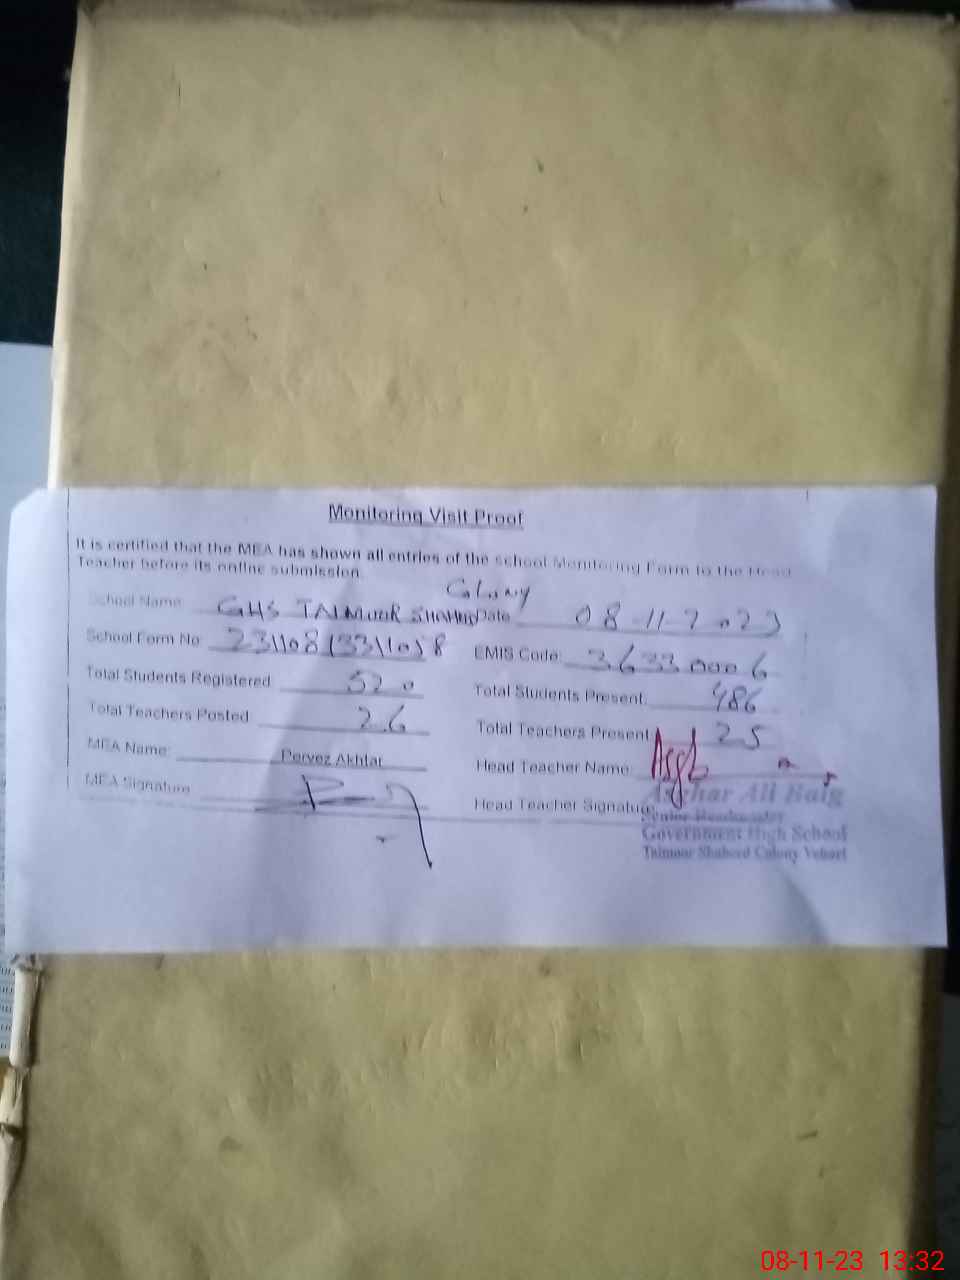 Monitoring Visit Proof
It is certified that the MEA has shown all entries of the school Monitoring Form to the Head
Teacher before its online submission.
Colony
School Name: GHS TAIMUUR SHAHEED Date 08-11-2023
School Form No: EMIS Code: 36330006
Total Students Registered 520 Total Students Present: 486
Total Teachers Posted 26 Total Teachers Present 25
MEA Name: Pervez Akhtar Head Teacher Name:
MEA Signature Head Teacher Signature
Asghar Ali Baig
Senior Headmaster
Government High School
Taimoor Shaheed Colony Vehari
08-11-23 13:32